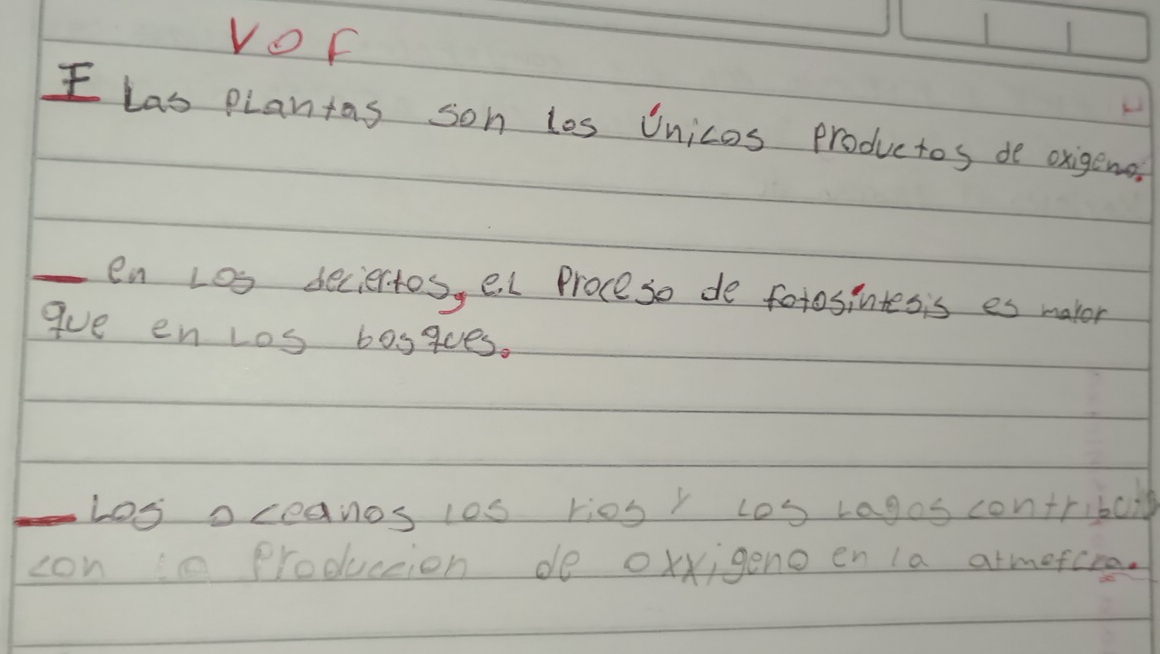 V O F
F Las plantas son los únicos productos de oxigeno.
en los deciertos, el proceso de fotosíntesis es maior
que en los bosques.
Los oceanos los rios y los lagos
con la produccion de oxxigeno en la atmofera.